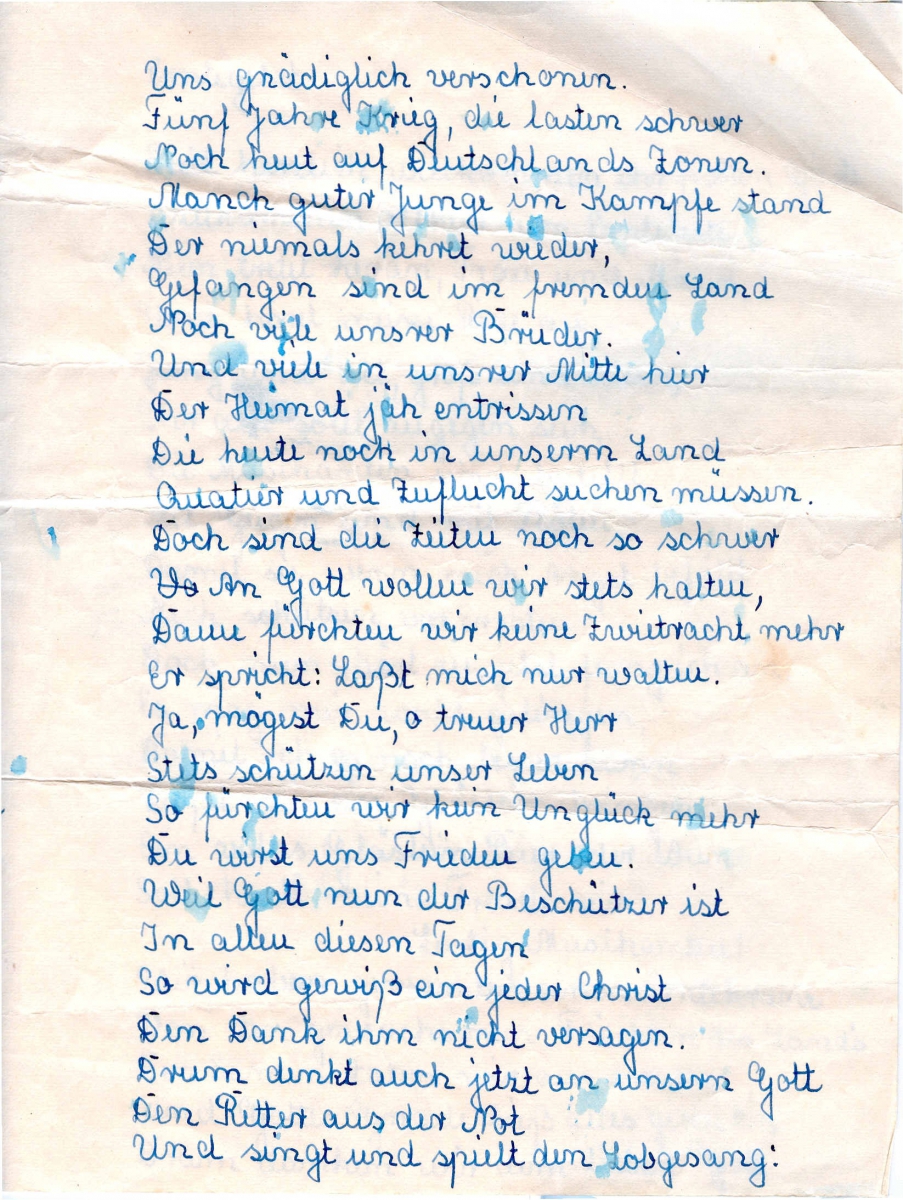 Uns gnädiglich verschonen.
Fünf Jahre Krieg, die lasten schwer
Noch heut auf Deutschlands Zonen.
Manch guter Junge im Kampfe stand
Der niemals kehret wieder,
Gefangen sind im fremden Land
Noch viele unsrer Brüder.
Und viele in unsrer Mitte hier
Der Heimat jäh entrissen
Die heute noch in unserm Land
Quatier und Zuflucht suchen müssen.
Doch sind die Zeiten noch so schwer
An Gott wollen wir stets halten,
Dann fürchten wir keine Zwietracht mehr
Er spricht: Laßt mich nur walten.
Ja, mögest Du, o treuer Herr
Stets schützen unser Leben
So fürchten wir kein Unglück mehr
Du wirst uns Frieden geben.
Weil Gott nun der Beschützer ist
In allen diesen Tagen
So wird gewiß ein jeder Christ
Den Dank ihm nicht versagen.
Drum denkt auch jetzt an unsern Gott
Den Retter aus der Not
Und singt und spielt den Lobgesang: